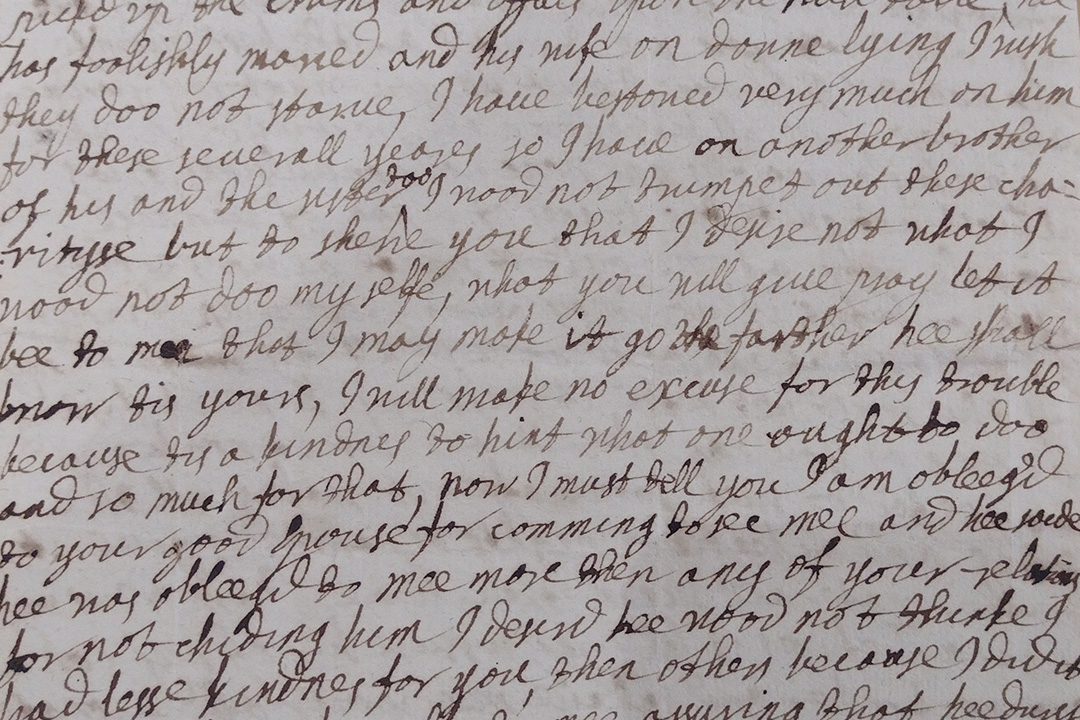 has foolishly maried and his wife on donne lying I wish
they doo not starve, I have bestowed very much on him
for these severall yeares so I have on another brother
of his and the sister too I nood not trumpet out these cha-
ritysse but to shewe you that I desire not what I
wood not doo my selfe, what you will give pray let it
bee to mee that I may make it go the farther hee shall
know tis yours, I will make no excuse for this trouble
because tis a kindnes to hint what one ought to doo
and so much for that, now I must tell you I am obleegd
to your good spouse for comming to see mee and hee saide
hee was obleegd to mee more then any of your relations
for not chiding him I desird hee wood not thinke I
had lesse kindnes for you, then others because I did it
mee assuring that hee durst